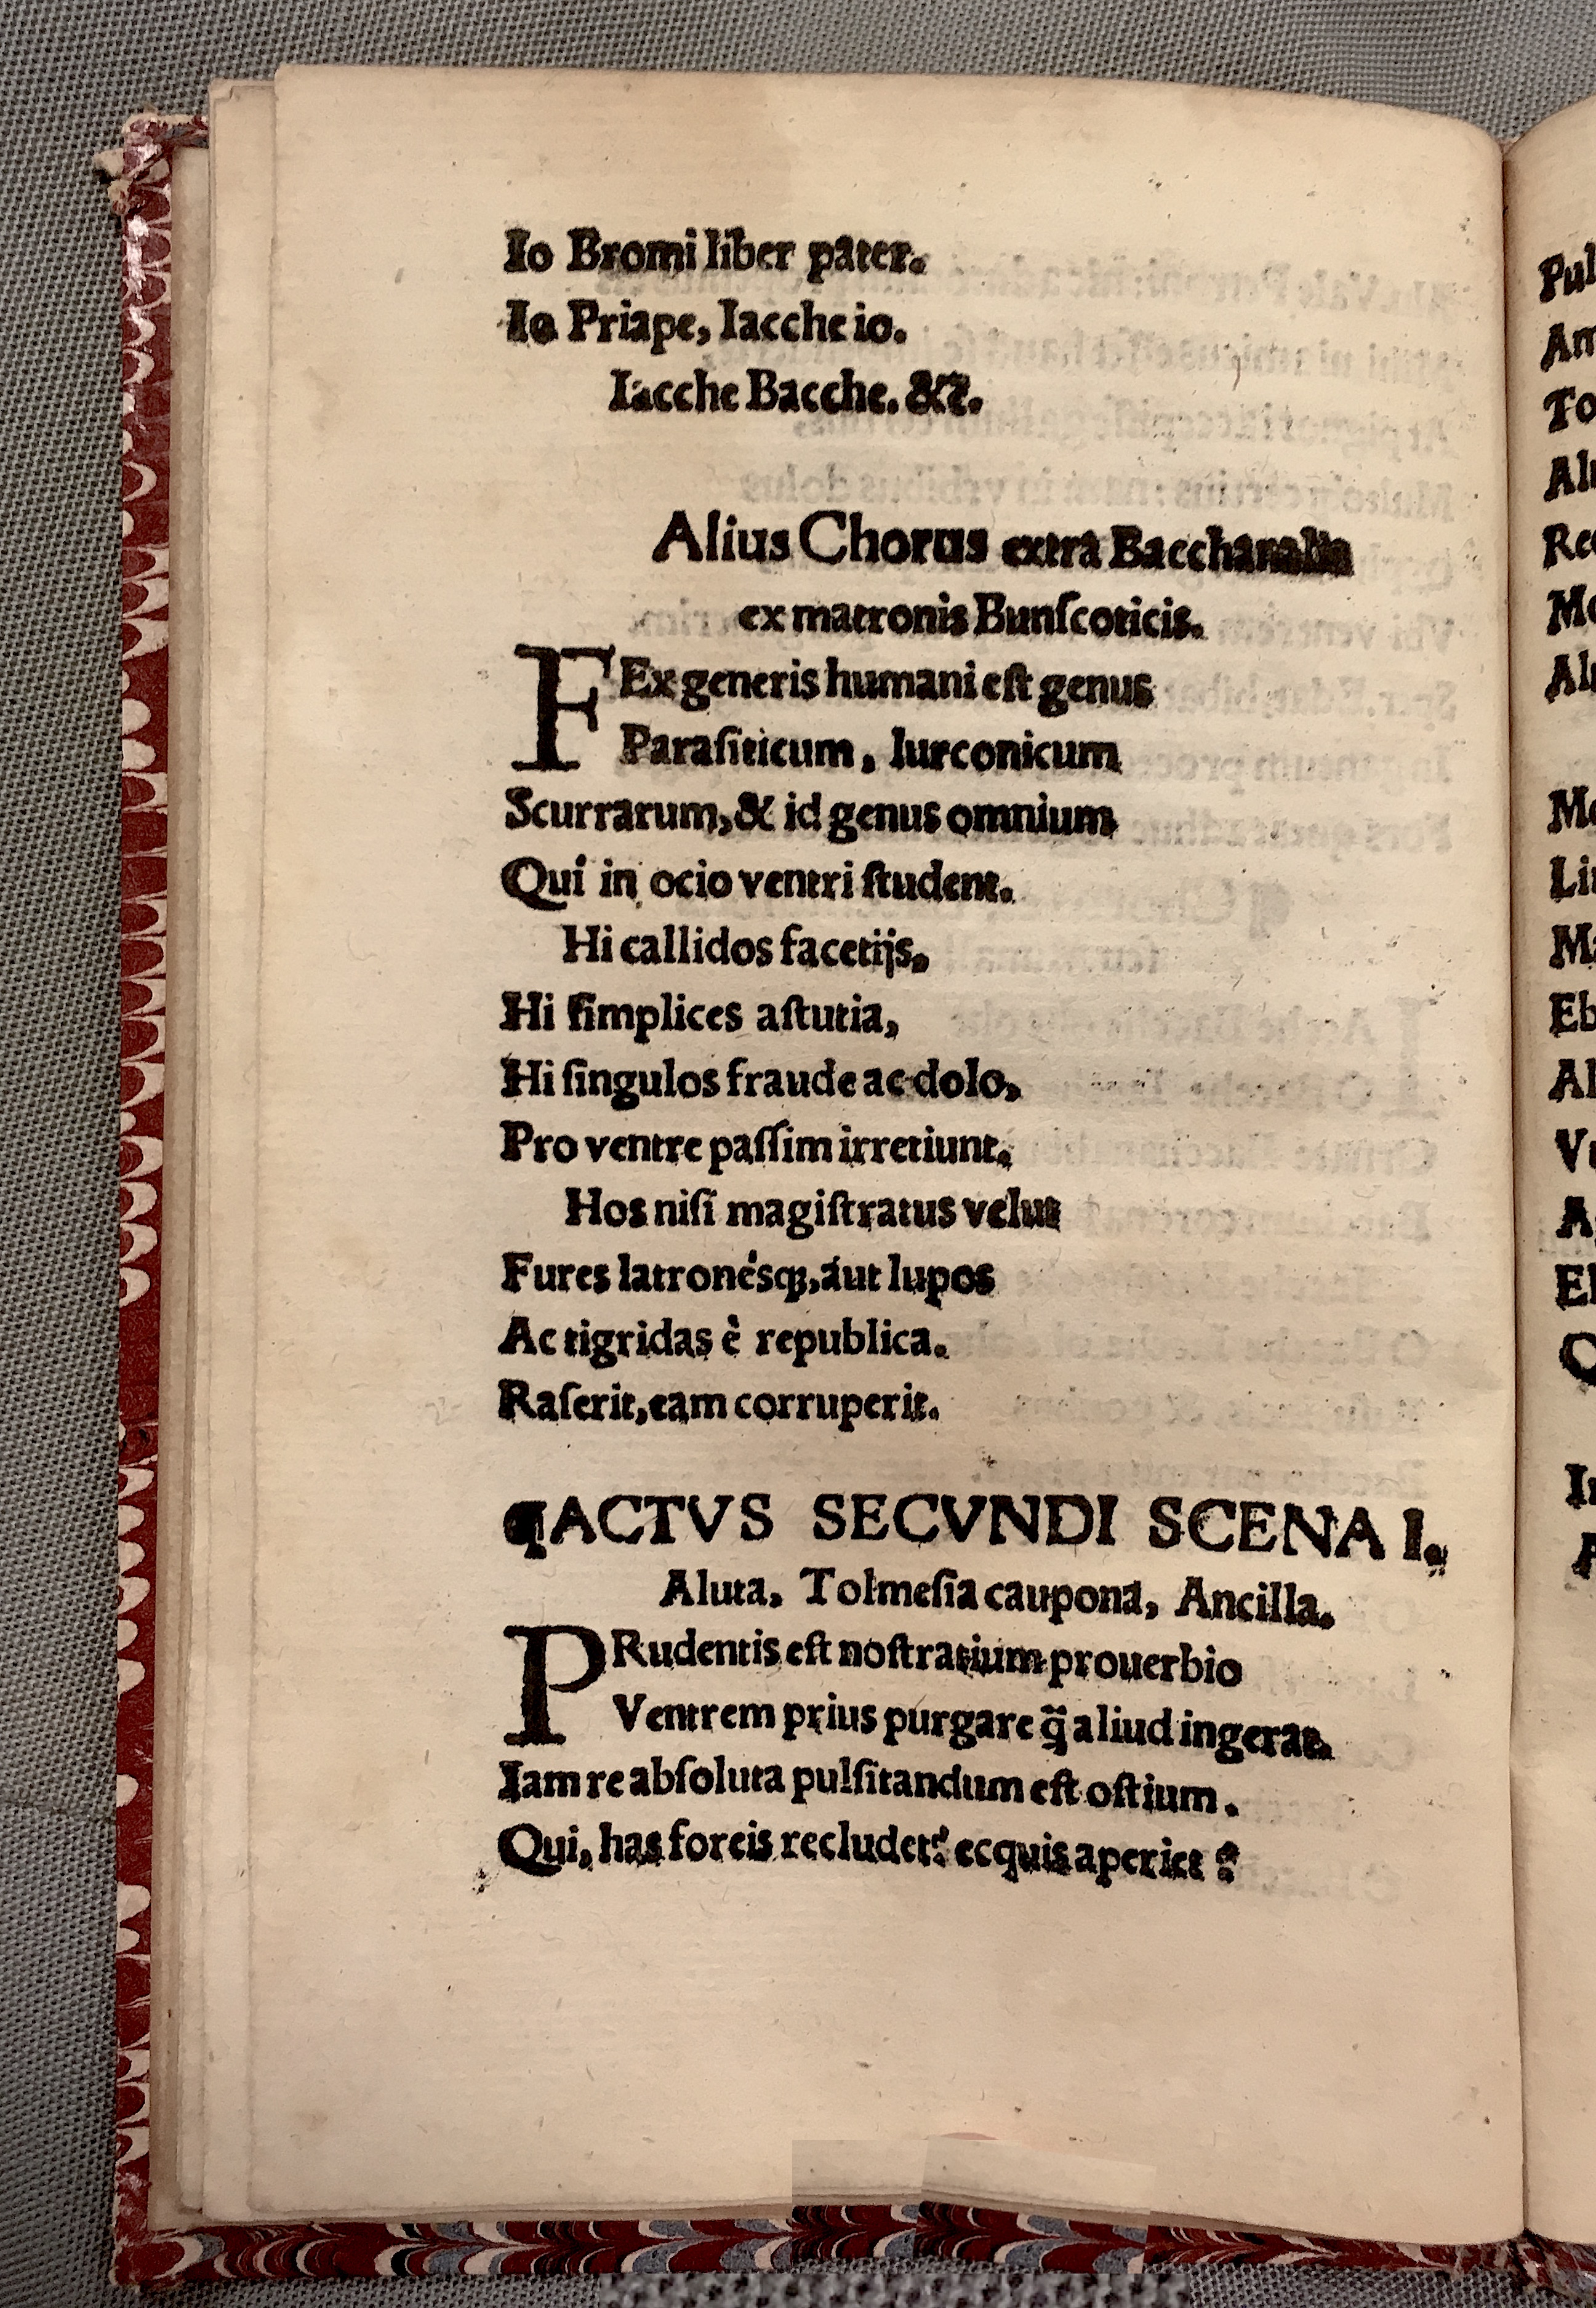 Io Bromi liber pater.
Io Priape, Iacche io.
Iacche Bacche. &c.
Alius Chorus extra Bacchanalia
ex matronis Bunſcoticis.
FEx generis humani eſt genus
Paraſiticum, lurconicum
Scurrarum, & id genus omnium
Qui in ocio ventri ſtudent.
Hi callidos facetijs,
Hi ſimplices aſtutia,
Hi ſingulos fraude ac dolo,
Pro ventre paſſim irretiunt.
Hos niſi magiſtratus velut
Fures latronésq;, aut lupos
Ac tigridas è republica.
Raſerit, eam corruperit.
¶ACTVS SECVNDI SCENA I.
Aluta, Tolmeſia caupona, Ancilla.
PRudentis eſt noſtratium prouerbio
Ventrem prius purgare q̃ aliud ingerat.
Iam re abſoluta pulſitandum eſt oſtium.
Qui, has foreis recludet? ecquis aperiet?
Pul
Am
To
Alu
Rec
Me
Alu
Me
Lin
Ma
Eb
Al
Vt
A
El
Q
In
A